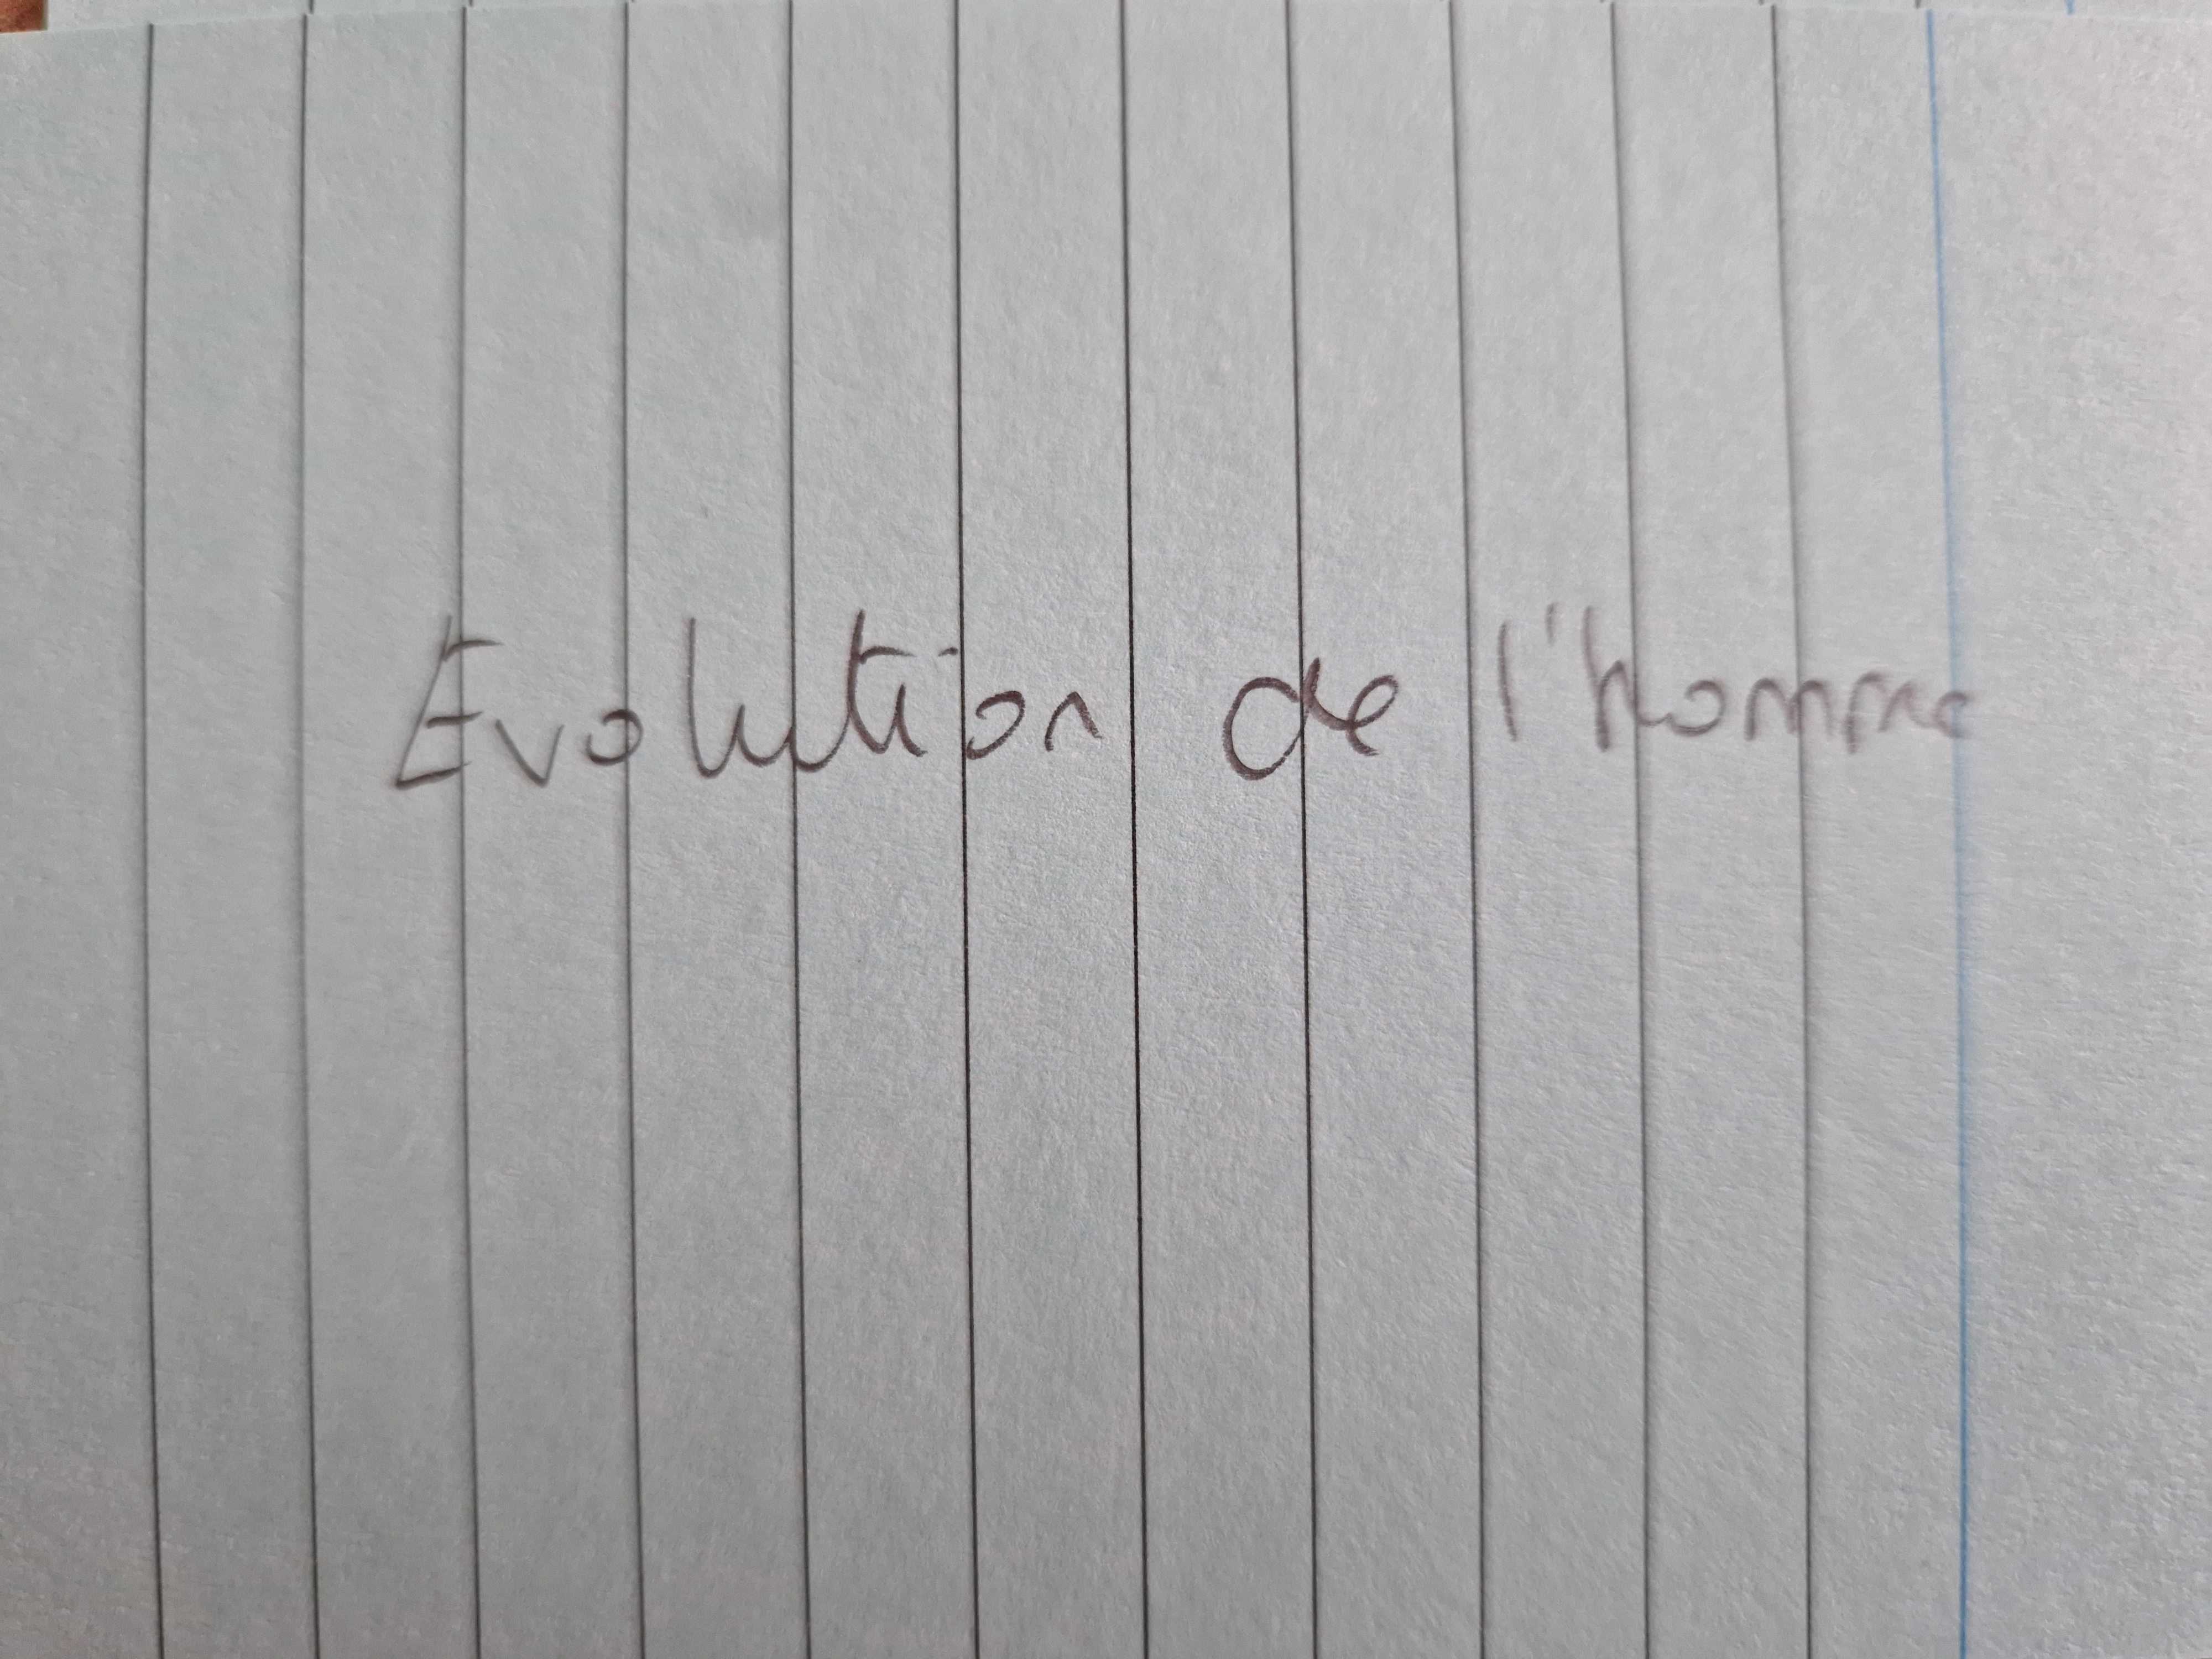 Evolution de l'homme